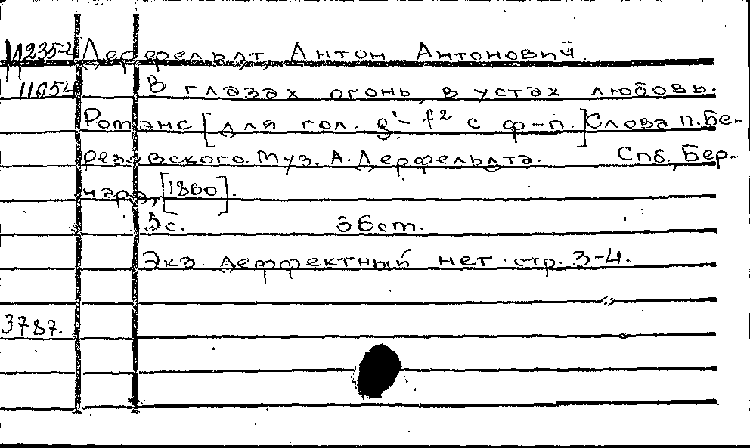 И235-2 Дерфельдт, Антон Антонович.
11654 В глазах огонь, в устах любовь.
Романс [для гол. g¹-f² с ф-п.] Слова П. Бе-
резовского. Муз. А. Дерфельдта. Спб, Бер-
нард, [1860].
5с. 36 cm.
Экз деффектный нет стр. 3-4.
3787.